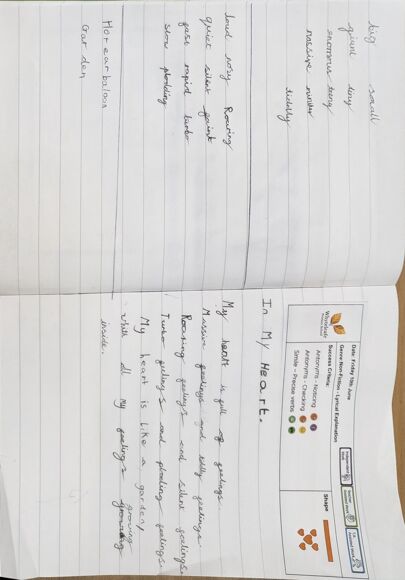 big small
giant tiny
enormous teeny
massive
loud nosy Roaring
quiet silent
fast rapid turbo
slow plodding
Hot ear baloon
Garden
WhinSafe
Date: Friday 13th June
Genre: Non-Fiction - Lyrical Explanation
Success Criteria:
Antonyms - Noticing
Antonyms - Checking
Simile - Precise verbs
Shape
In My Heart.
My heart is full of feelings.
Massive feelings and feelings.
Roaring feelings and silent feelings.
Turbo feelings and plodding feelings.
My heart is Like a garden,
With all my feelings growing
inside.